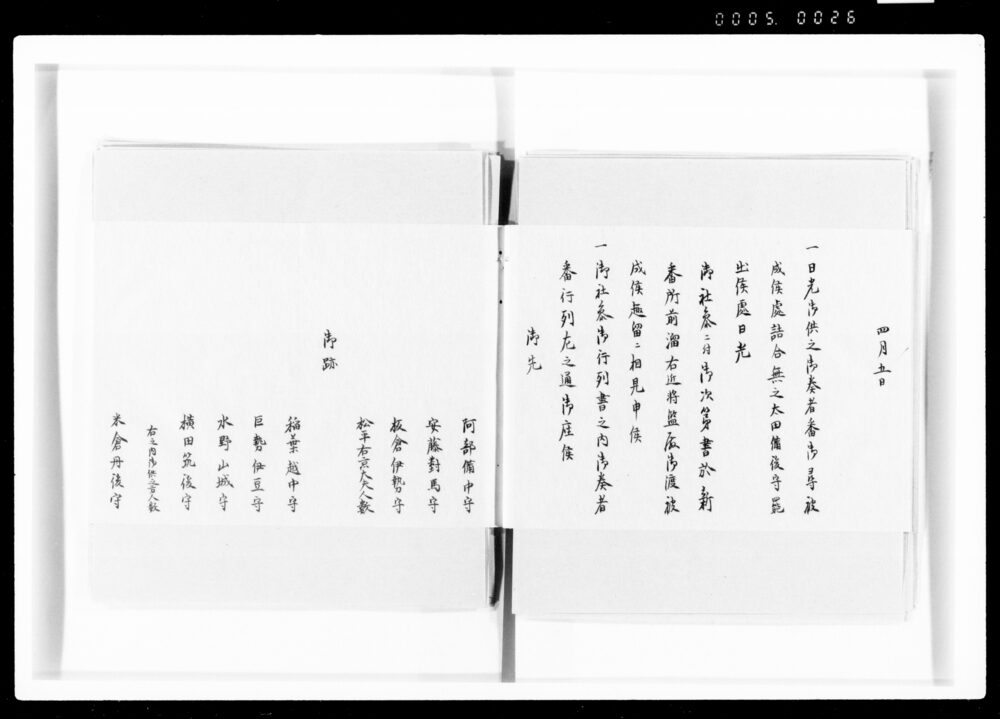 0005. 0026
四月五日
一日光御供之御奏者番御尋被
成候處詰合無之太田備後守罷
出候處日光
御社参ニ付御次第書於新
番所前溜右近将監殿御渡被
成候趣留ニ相見申候
一御社参御行列書之内御奏者
番行列左之通御座候
御先
阿部備中守
安藤對馬守
板倉伊勢守
松平右京大夫人数
御跡
稲葉越中守
巨勢伊豆守
水野山城守
横田筑後守
右之内御供之者人数
米倉丹後守